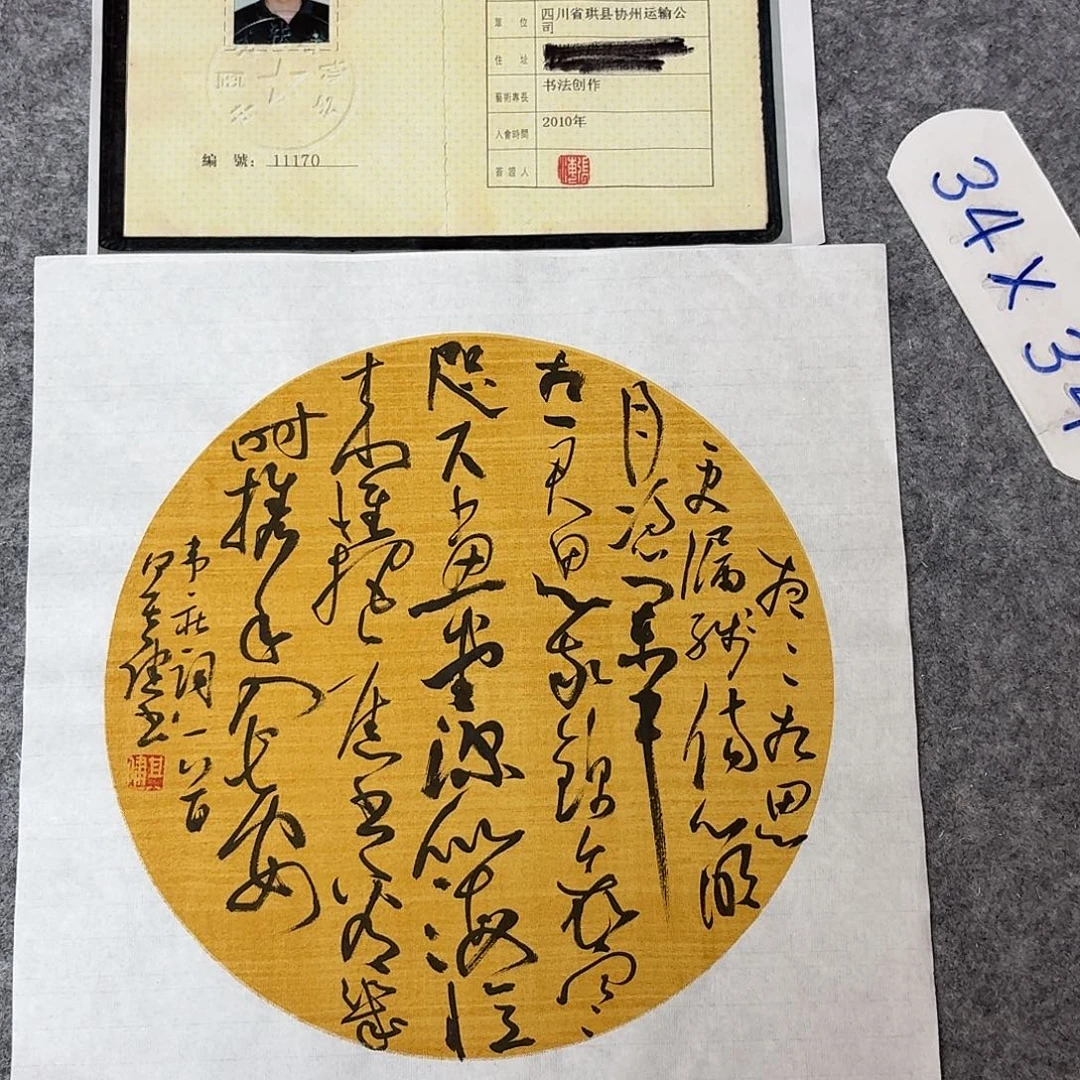 單 位 四川省珙县协州运输公
司
住 址
藝術專長 书法创作
入會時間 2010年
簽證人
编 號: 11170
34 X 34
夜〻相思
更漏残伤心明
月凭阑干
想君思我錦衾寒
咫尺画堂深似海憶
来惟把旧书看幾
时携手入长安
韦莊词一首